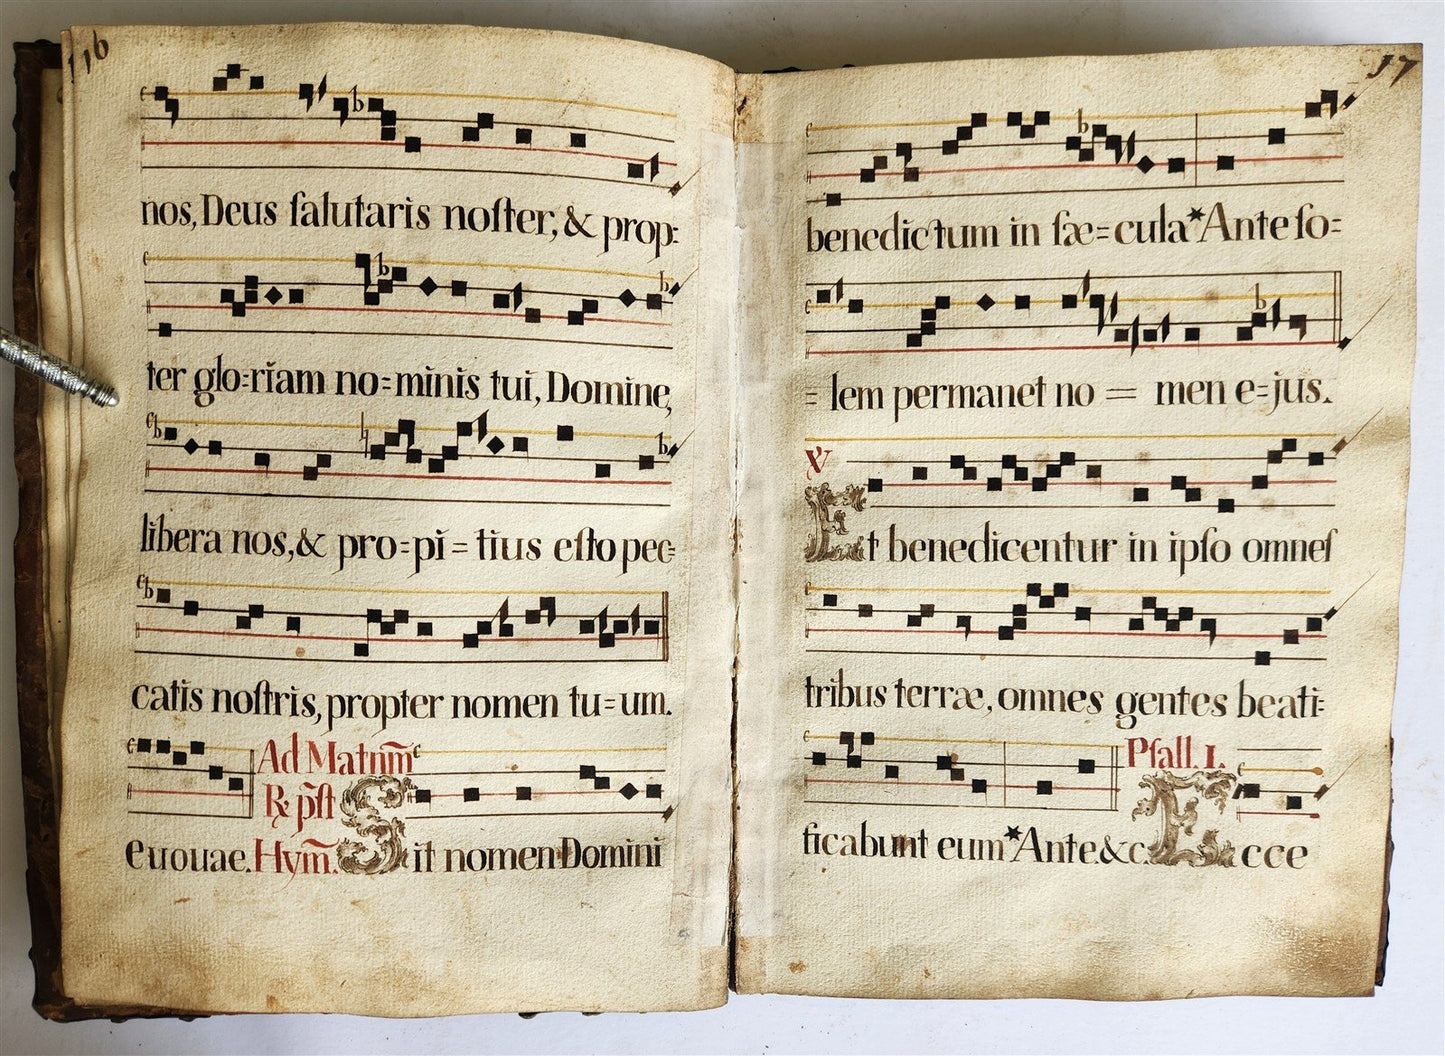 116
nos, Deus ſalutaris noſter, & prop=
ter glo=riam no=minis tui, Domine,
libera nos, & pro=pi=tius eſto pec=
catis noſtris, propter nomen tu=um.
Ad Matum̃
℞ p̃ſt
euouae. Hym̃. Sit nomen Domini
17
benedictum in ſæ=cula*Ante ſo=
=lem permanet no = men e=jus.
℣
Et benedicentur in ipſo omneſ
tribus terræ, omnes gentes beati=
Pſall. 1.
ficabunt eum*Ante &c. Ecce